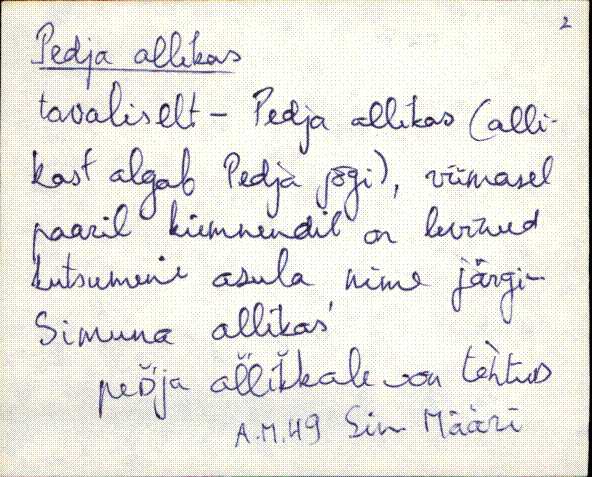 2
Pedja allikas
tavaliselt – Pedja allikas (alli-
kast algab Pedja jõgi), viimasel
paaril kümnendil on levinud
kutsumine asula nime järgi –
Simuna allikas
allikkale on tehtud
A.M.49 Sim Määri